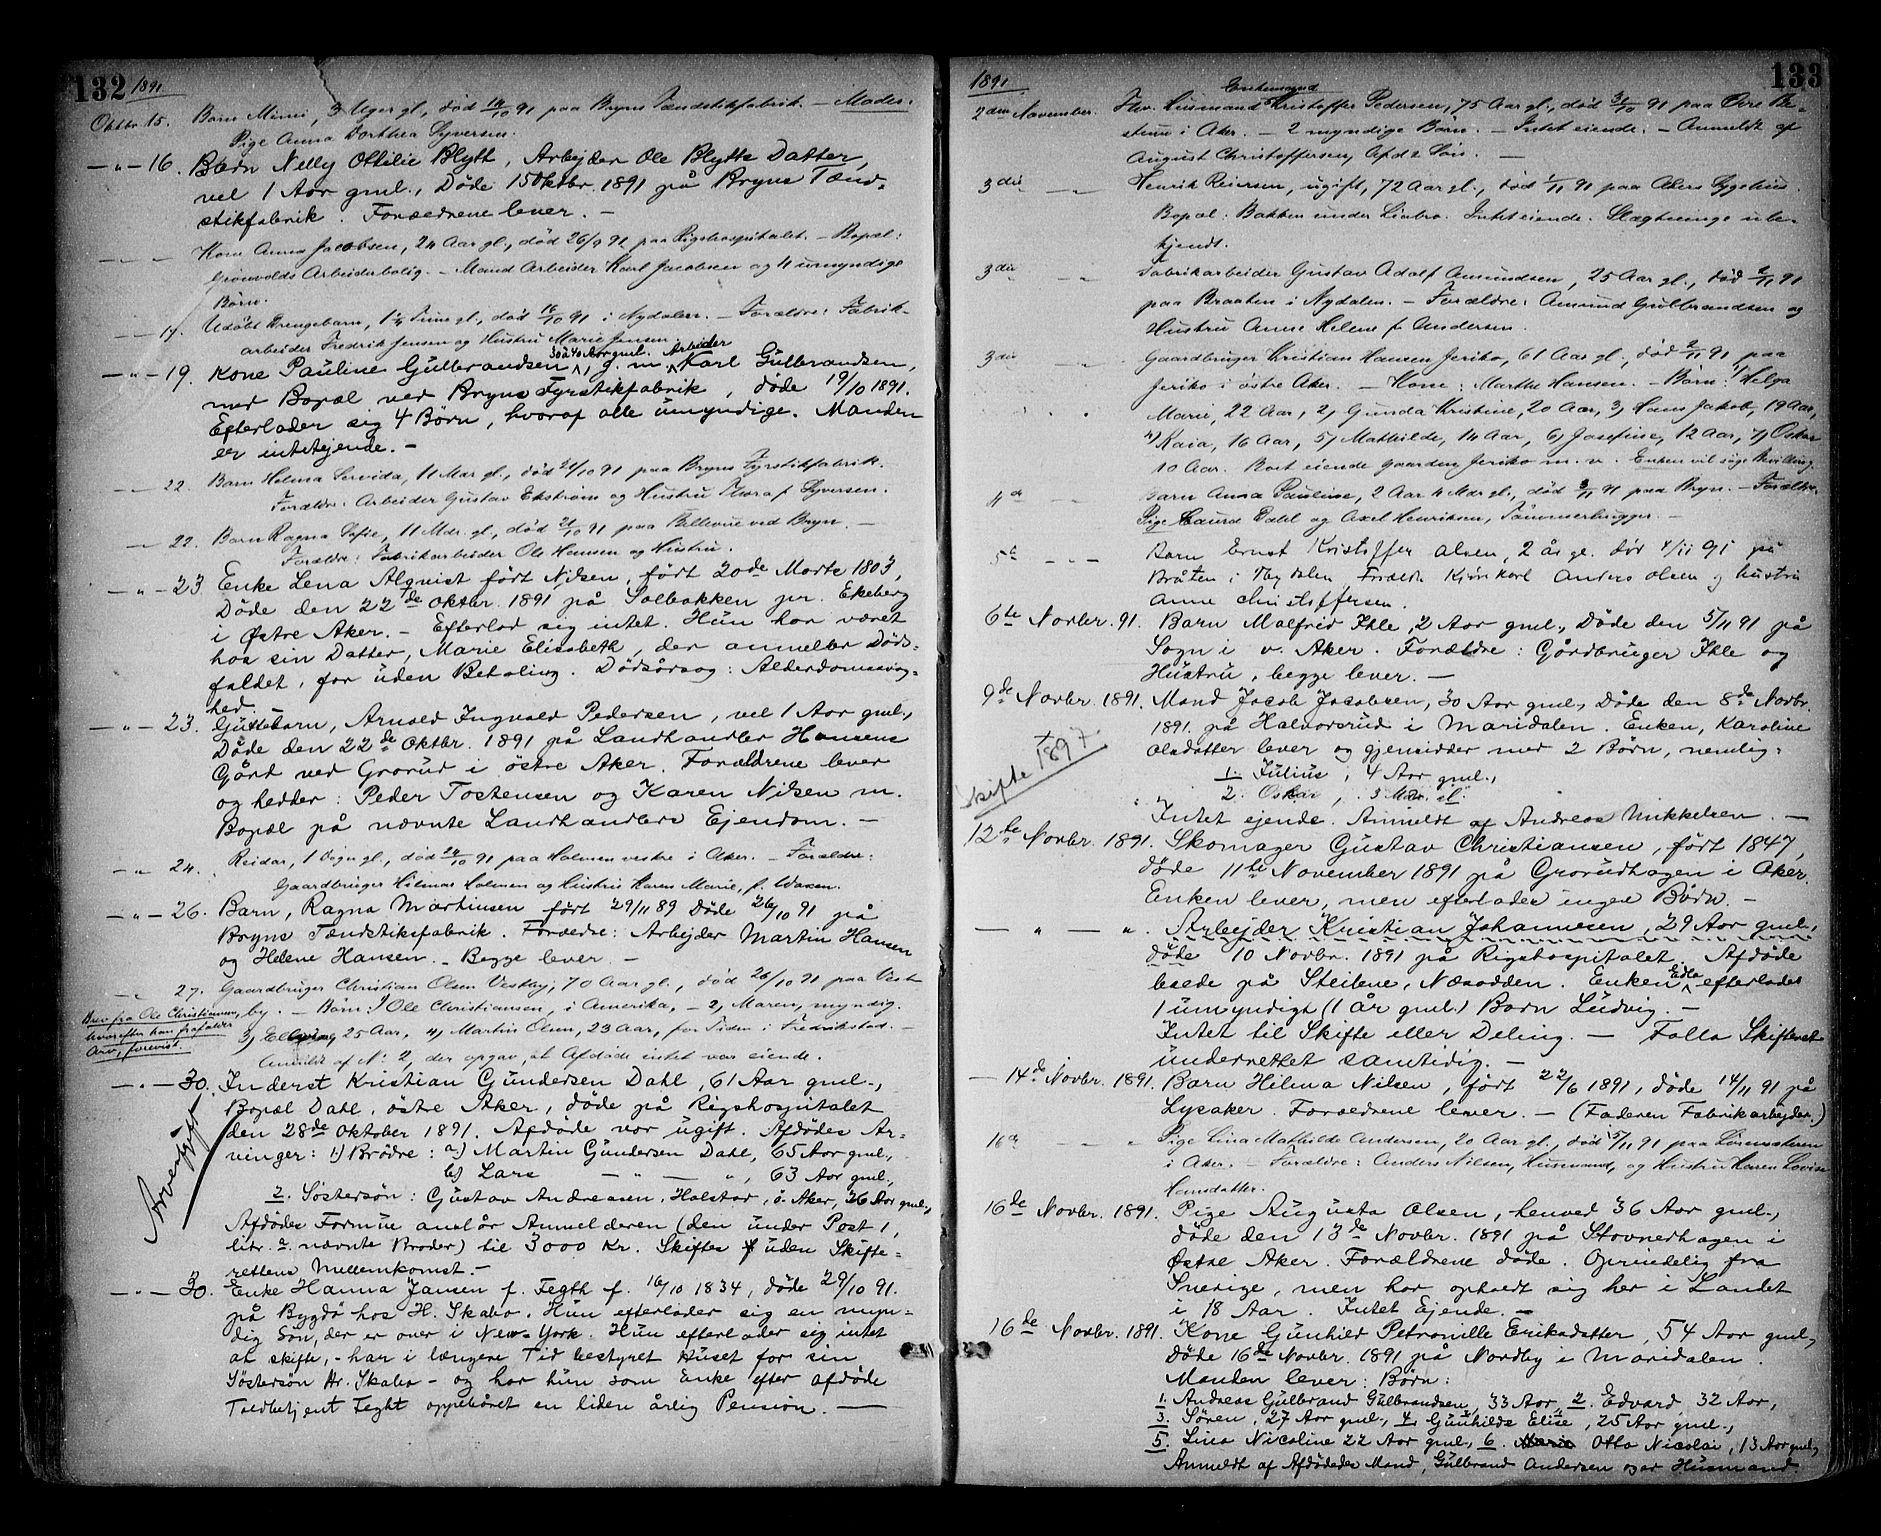 132 1891
Oktbr. 15. Barn Mimi, 3 Uger gl., død 14/10 91 paa Bryns Tændstikfabrik. — Moder:
Pige Anna Dorthea Syversen.
— " — 16. Barn Nelly Ottilie Blytt, Arbejder Ole Blytts Datter,
vel 1 Aar gml., Døde 15 Oktbr. 1891 på Bryns Tænd-
stikfabrik. Forældrene lever. —
— " — Kone Anna Jacobsen, 24 Aar gl., død 26/9 91 paa Rigshospitalet. — Bopæl:
Grønvolds Arbeiderbolig. — Mand Arbeider Karl Jacobsen og 4 umyndige
Børn.
— " — 17. Udøbt Drengebarn, 1¼ Time gl., død 16/10 91 i Nydalen. — Forældre: Fabrik-
arbeider Fredrik Jensen og Hustru Marie Jensen.
30 à 40 Aar gml. Arbeider
— " — 19. Kone Pauline Gulbrandsen, g. m. Karl Gulbrandsen,
med Bopæl ved Bryns Fyrstikfabrik, døde 19/10 1891.
Efterlader sig 4 Børn, hvoraf alle umyndige. Manden
er intetejende. —
— " — 22. Barn Helma Servida, 11 Mdr gl., død 21/10 91 paa Bryns Fyrstikfabrik.
Forældre: Arbeider Gustav Ekstrøm og Hustru Thora f. Syversen.
— " — 22. Barn Ragna Sofie, 11 Mdr. gl., død 21/10 91 paa Bellevue ved Bryn. —
Forældre: Fabrikarbeider Ole Hansen og Hustru.
— " — 23 Enke Lena Alqvist født Nilsen, født 20de Marts 1803,
Døde den 22de Oktbr. 1891 på Solbakken pr. Ekeberg
i Østre Aker. — Efterlod sig intet. Hun har været
hos sin Datter, Marie Elisabeth, der anmelder Døds-
faldet, for uden Betaling. Dødsårsag: Alderdomssvag-
hed. —
— " — 23. Guttebarn, Arnold Ingvald Pedersen, vel 1 Aar gml.,
Døde den 22de Oktbr. 1891 på Landhandler Hansens
Gård ved Grorud i østre Aker. Forældrene lever
og hedder: Peder Tostensen og Karen Nilsen m.
Bopæl på nævnte Landhandlers Ejendom. —
— " — 24. Reidar, 1 Døgn gl., død 24/10 91 paa Holmen vestre i Aker. — Forældre:
Gaardbruger Hilmar Holmen og Hustru Karen Marie, f.
— " — 26. Barn, Ragna Martinsen født 29/11 89 Døde 26/10 91 på
Bryns Tændstiksfabrik. Forældre: Arbejder Martin Hansen
og Helene Hansen. — Begge lever. —
— " — 27. Gaardbruger Christian Olsen Vestby, 70 Aar gl., død 26/10 91 paa Vest-
by. — Børn: 1) Ole Christiansen, i Amerika, — 2) Maren, myndig.
3) 25 Aar, 4) Martin Olsen, 23 Aar, for Tiden i Fredrikstad.
Anmeldt af No. 2, der opgav, at Afdøde intet var eiende.
Brev fra Ole Christiansen,
hvorefter han frafalder
Arv, forevist.
— " — 30. Inderst Kristian Gundersen Dahl, 61 Aar gml.,
Bopæl Dahl, østre Aker, døde på Rigshospitalet
den 28de Oktober 1891. Afdøde var ugift. Afdødes Ar-
vinger: 1) Brødre: a) Martin Gundersen Dahl, 65 Aar gml.,
b) Lars — " — — " —, 63 Aar gml.,
2. Søstersøn: Gustav Andreasen, Holstad, ø. Aker, 26 Aar gml.,
Afdødes Formue anslår Anmelderen (den under Post 1,
litr. a. nævnte Broder) til 3000 Kr. Skiftes uden Skifte-
rettens Mellemkomst. —
Arveafgift
— " — 30. Enke Hanna Jansen f. Fegth f. 16/10 1834, døde 29/10 91.
på Bygdø hos H. Skabo. Hun efterlader sig en myn-
dig Søn, der er over i New-York. Hun efterlader sig intet
at skifte, — har i længere Tid bestyret Huset for sin
Søstersøn Hr. Skabo — og har hun som Enke efter afdøde
Toldbetjent Feght oppebåret en liden årlig Pension. —
1891 133
Enkemand
2den November. Fhv. Husmand Kristoffer Pedersen, 75 Aar gl., død 31/10 91 paa Øvre
i Aker. — 2 myndige Børn. — Intet eiende. — Anmeldt af
August Christoffersen, Afd's Søn. —
3die — " — Henrik Reiersen, ugift, 72 Aar gl., død 1/11 91 paa Akers Sygehus.
Bopæl: Bakken under Liabro. Intet eiende. Slægtninge ube-
kjendt.
3die — " — Fabrikarbeider Gustav Adolf Amundsen, 25 Aar gl., død 2/11 91
paa Braaten i Nydalen. — Forældre: Amund Gulbrandsen og
Hustru Anne Helene f. Andersen.
3die — " — Gaardbruger Kristian Hansen Jeriko, 61 Aar gl., død 2/11 91 paa
Jeriko i østre Aker. — Kone: Marthe Hansen. — Børn: 1) Helga
Marie, 22 Aar, 2) Gunda Kristine, 20 Aar, 3) Hans Jakob, 19 Aar,
4) Kaia, 16 Aar, 5) Mathilde, 14 Aar, 6) Josefine, 12 Aar, 7) Oskar
10 Aar. Boet eiende Gaarden Jeriko m. v. Enken vil søge Bevilling.
4de — " — Barn Anna Pauline, 2 Aar 4 Mdr gl., død 3/11 91 paa Bryn. — Forældre:
Pige Laura Dahl og Axel Henriksen, Tømmerhugger. —
5te — " — Barn Ernst Kristoffer Olsen, 2 år gl. død 4/11 91 på
Bråten i Nydalen, Foræld. Anders Olsen og hustru
Anne Christoffersen.
6te Novbr. 91. Barn Malfrid Ihle, 2 Aar gml., Døde den 5/11 91 på
Sogn i v. Aker. Forældre: Gårdbruger Ihle og
Hustru, begge lever. —
9de Novbr. 1891. Mand Jacob Jacobsen, 30 Aar gml., Døde den 8de Novbr.
1891 på Halvorsrud i Maridalen. Enken, Karoline
Olsdatter lever og gjensidder med 2 Børn, nemlig:
1. Julius, 4 Aar gml.,
2. Oskar, 3 Mdr. gl.
Intet ejende. Anmeldt af Andreas Mikkelsen. —
Skifte 1897
12te Novbr. 1891. Skomager Gustav Christiansen, født 1847,
døde 11te November 1891 på Grorudhagen i Aker.
Enken lever, men efterlader ingen Børn. —
— " — " — Arbejder Kristian Johannesen, 29 Aar gml.,
døde 10 Novbr. 1891 på Rigshospitalet. Afdøde
boede på Steilene, Næsodden. Enken Edle efterlades
1 umyndigt (1 år gml.) Barn Ludvig. —
Intet til Skifte eller Deling. — Follo Skifteret
underrettet samtidig. —
— 14de Novbr. 1891. Barn Hilma Nilsen, født 22/6 1891, døde 14/11 91 på
Lysaker. Forældrene lever. — (Faderen Fabrikarbejder.)
16de — " — Pige Lina Mathilde Andersen, 20 Aar gl., død 15/11 91 paa Lørensæteren
i Aker. — Forældre: Anders Nilsen, Husmand, og Hustru Karen Lovise
Hansdatter.
16de Novbr. 1891. Pige Augusta Olsen, henved 36 Aar gml.,
døde den 13de Novbr. 1891 på Stovnerhagen i
Østre Aker. Forældrene døde. Oprindelig fra
Sverige, men har opholdt sig her i Landet
i 18 Aar. Intet Ejende. —
16de Novbr. 1891. Kone Gunhild Petronille Eriksdatter, 54 Aar gml.,
Døde 16de Novbr. 1891 på Nordby i Maridalen.
Manden lever: Børn:
1. Andreas Gulbrand Gulbrandsen, 33 Aar, 2. Edvard, 32 Aar,
3. Søren, 27 Aar gml., 4. Gunhilde Elise, 25 Aar gml.,
5. Lina Nicoline 22 Aar gml., 6. Otto Nicolai, 13 Aar gml.,
Anmeldt af Afdødedes Mand, Gulbrand Andersen og er Husmand.